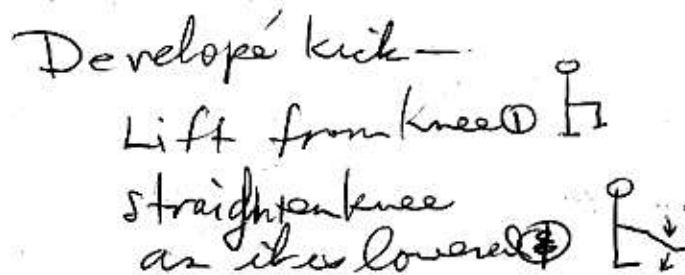 Developé kick —
Lift from knee ①
straighten knee
as it is lowered